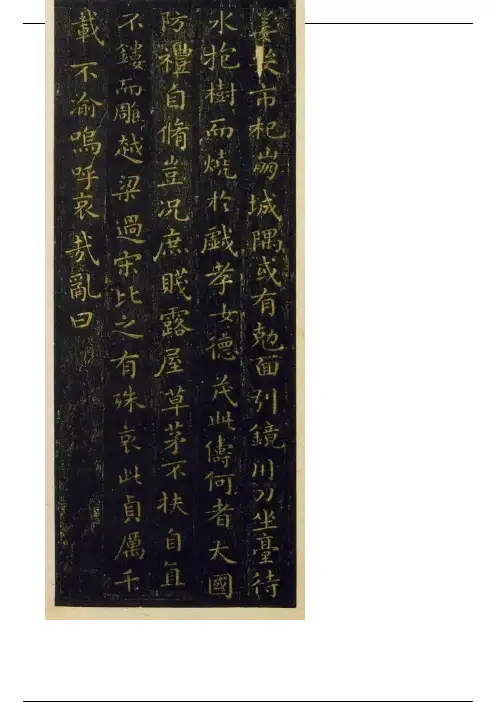 姜哭市杞崩城隅或有勊面引鏡川刀坐臺待
水抱樹而燒於戲孝女德茂此儔何者大國
防禮自脩豈况庶賤露屋草茅不扶自直
不鏤而雕越梁過宋比之有殊哀此貞厲千
載不渝嗚呼哀哉亂曰